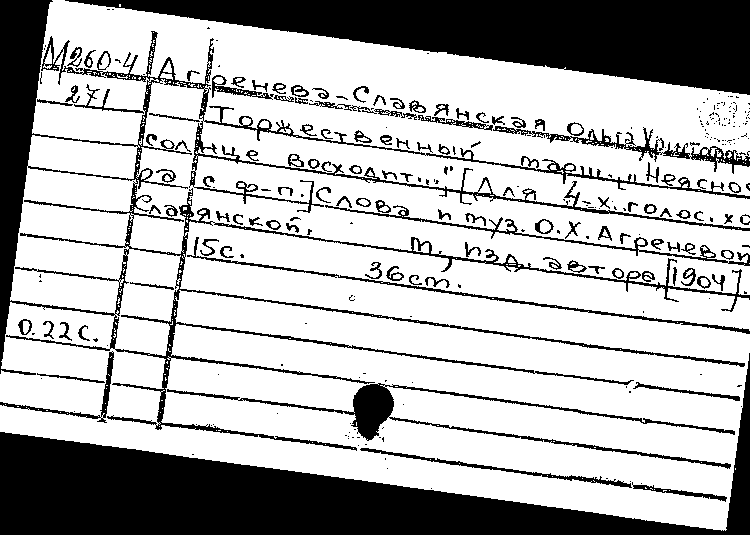 М260-4 Агренева-Славянская, Ольга Христофо
271
Торжественный марш. "Неясно
солнце восходит...", [Для 4-х. голос. хо
ра с ф-п.] Слова и муз. О.Х. Агреневой
Славянской.
м., изд. автора, [1904].
15с. 36см.
0.22 с.